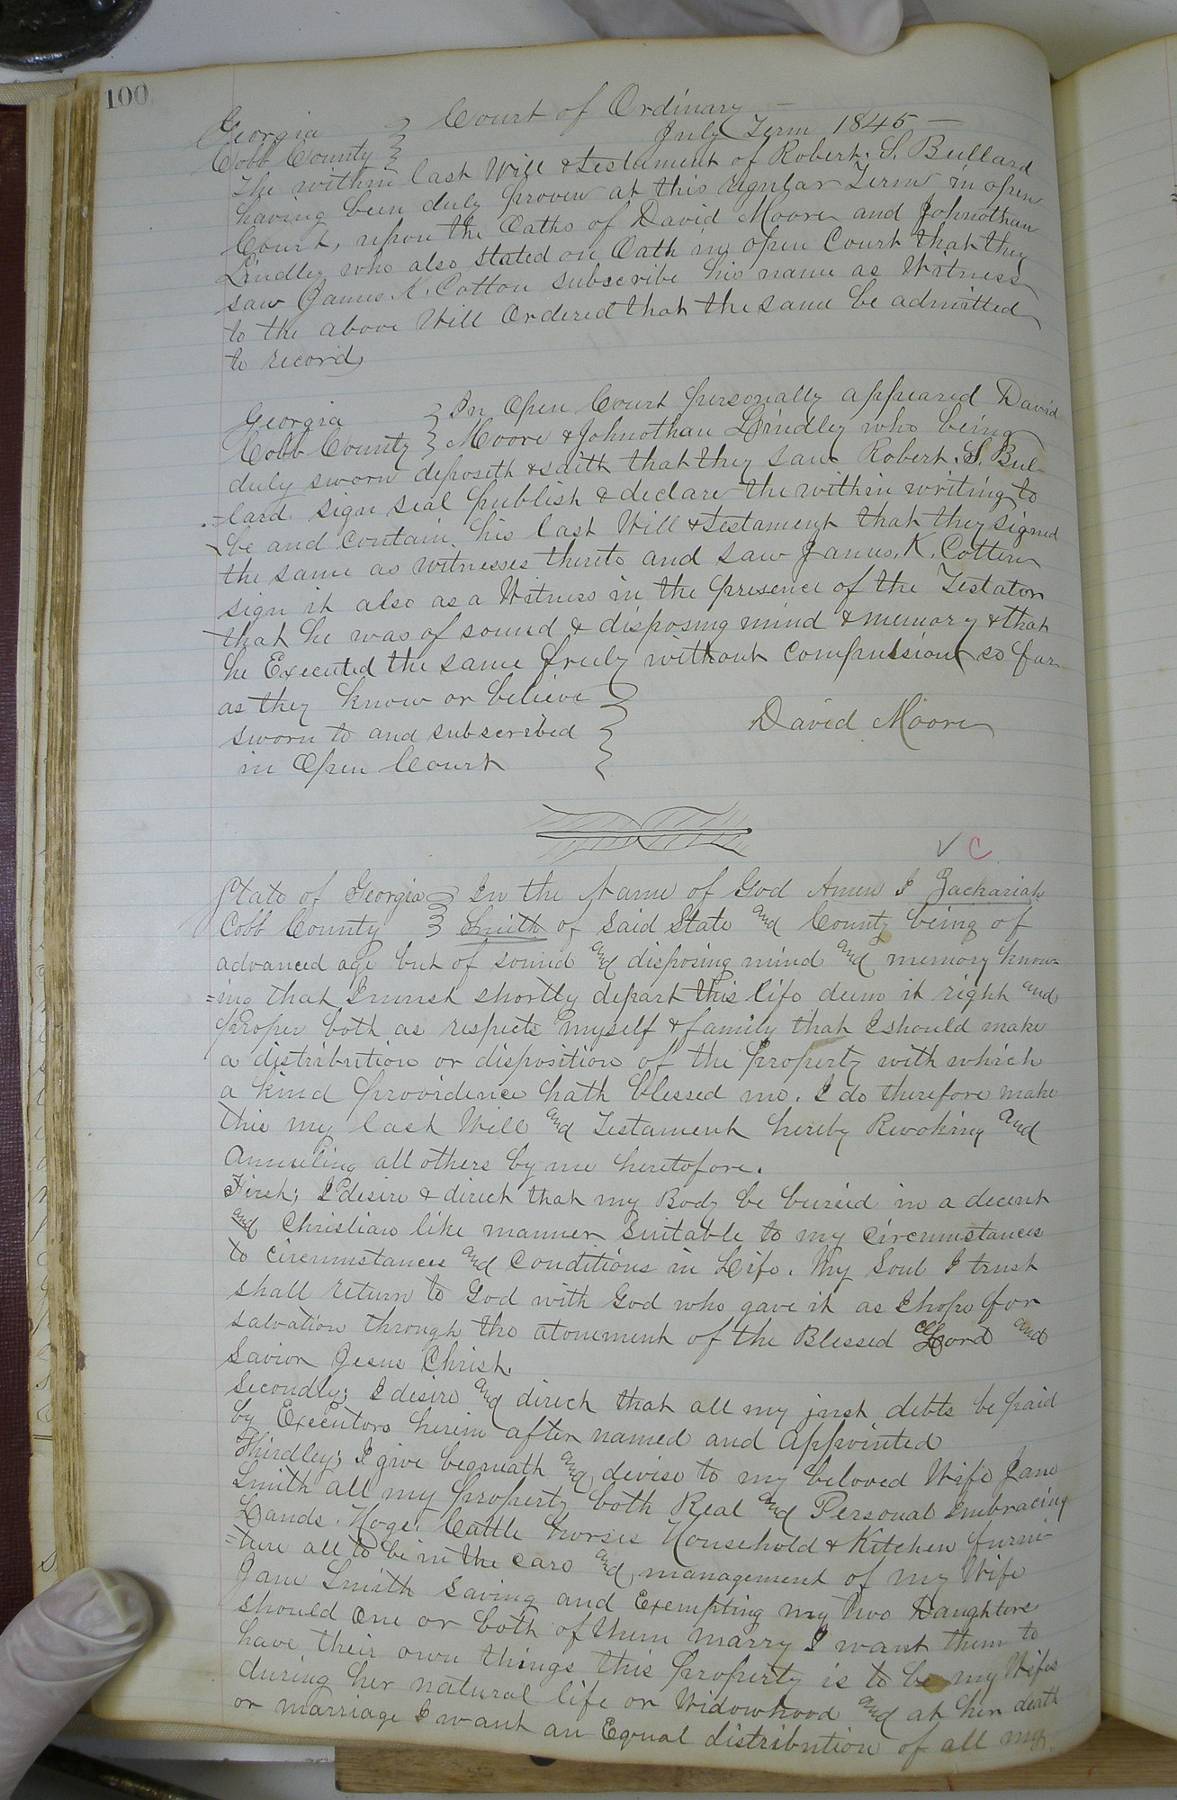 100
Court of Ordinary
Georgia
July Term 1845
Cobb County
The within last Will & Testament of Robert. S. Bullard
having been duly proven at this regular Term in open
Court, upon the Oaths of David Moore and Johnothan
Lindley who also stated on Oath in open Court that they
saw James. K. Cotton subscribe his name as Witness
to the above Will Ordered that the same be admitted
to record,
Georgia
Cobb County
In Open Court personally appeared David
Moore & Johnothan Lindley who being
duly sworn deposith & saith that they saw Robert. S. Bul-
=lard sign seal publish & declare the within writing to
be and contain his last Will & Testament that they signed
the same as witnesses thereto and saw James. K. Cotten
sign it also as a Witness in the presence of the Testator
that he was of sound & disposing mind & memory & that
he Executed the same freely without compulsion so far
as they know or believe
sworn to and subscribed
in Open Court
David Moore
C
State of Georgia
Cobb County
In the Name of God Amen I Zachariah
Smith of said State and County being of
advanced age but of sound and disposing mind and memory know-
=ing that I must shortly depart this life deem it right and
proper both as respects myself & family that I should make
a distribution or disposition of the property with which
a kind providence hath blessed me. I do therefore make
this my last Will and Testament hereby Revoking and
Annuling all others by me heretofore.
First; I desire & direct that my Body be buried in a decent
and Christian like manner suitable to my circumstances
to circumstances and conditions in Life. My Soul I trust
shall return to God with God who gave it as I hope for
salvation through the atonement of the Blessed Lord and
Savior Jesus Christ.
Secondly; I desire and direct that all my just debts be paid
by Executors herein after named and appointed
Thirdley; I give bequeath and devise to my beloved Wife Jane
Smith all my property both Real and Personal Imbracing
Lands. Hogs. Cattle horses Household & Kitchen furni-
=ture all to be in the care and management of my Wife
Jane Smith saving and Exempting my two Daughters
should one or both of them marry I want them to
have their own things this property is to be my Wifes
during her natural life or Widowhood and at her death
or marriage I want an Equal distribution of all my